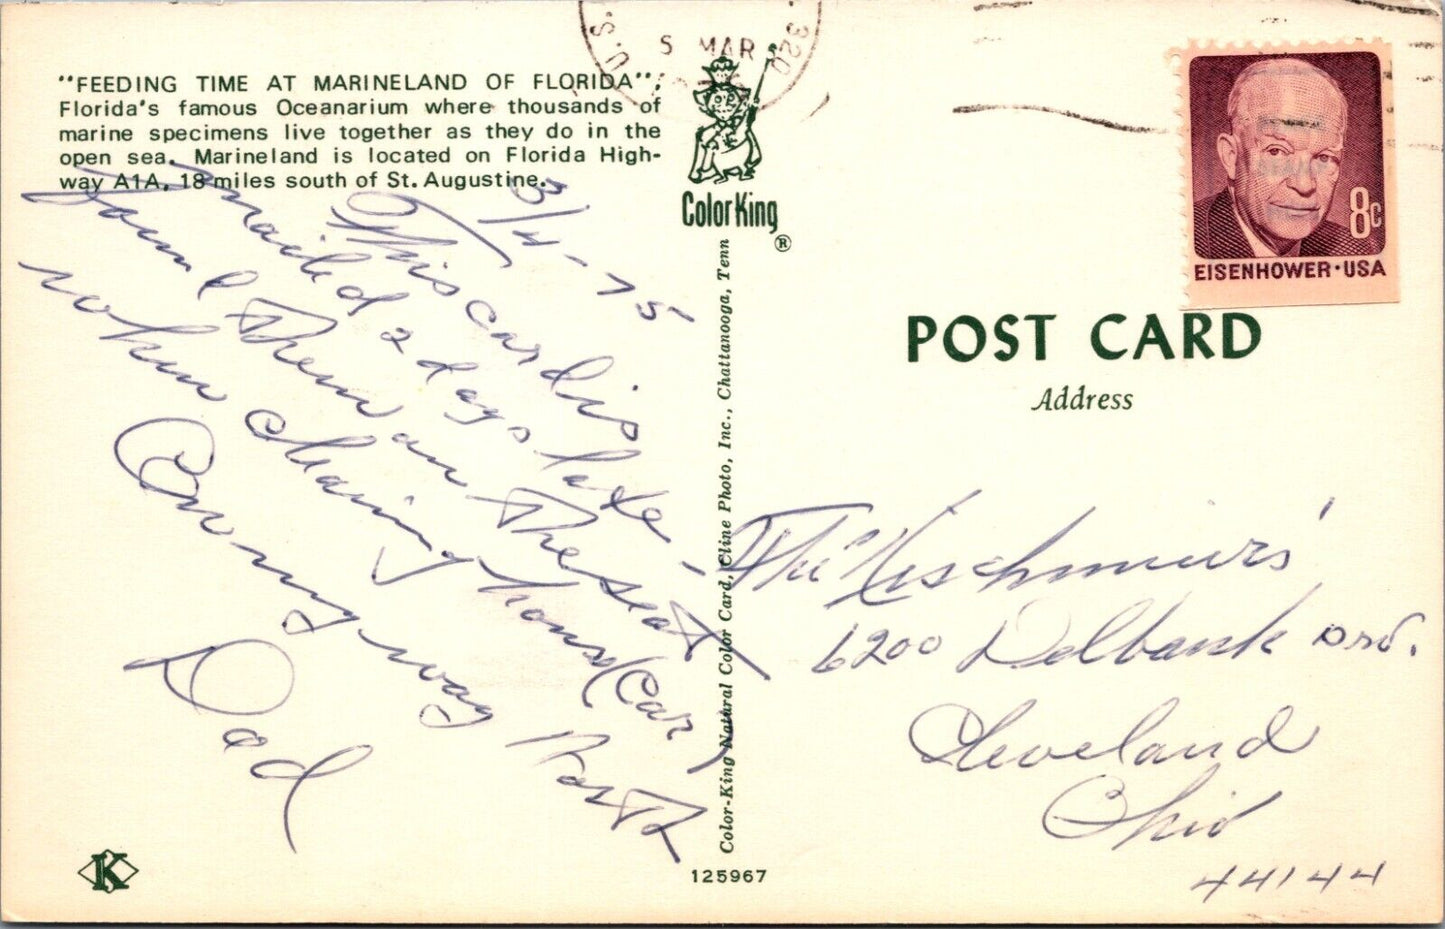 "FEEDING TIME AT MARINELAND OF FLORIDA";
Florida's famous Oceanarium where thousands of
marine specimens live together as they do in the
open sea. Marineland is located on Florida High-
way A1A, 18 miles south of St. Augustine.
3/4-75
This card is
mailed 2 days late -
Found them on the seat
when cleaning house (Car)
On my way Back
Dad
K
U.S.
320
5 MAR
Color King
®
Color-King Natural Color Card, Cline Photo, Inc., Chattanooga, Tenn
125967
8c
EISENHOWER·USA
POST CARD
Address
The
6200 Delbank
Cleveland
Ohio
44144